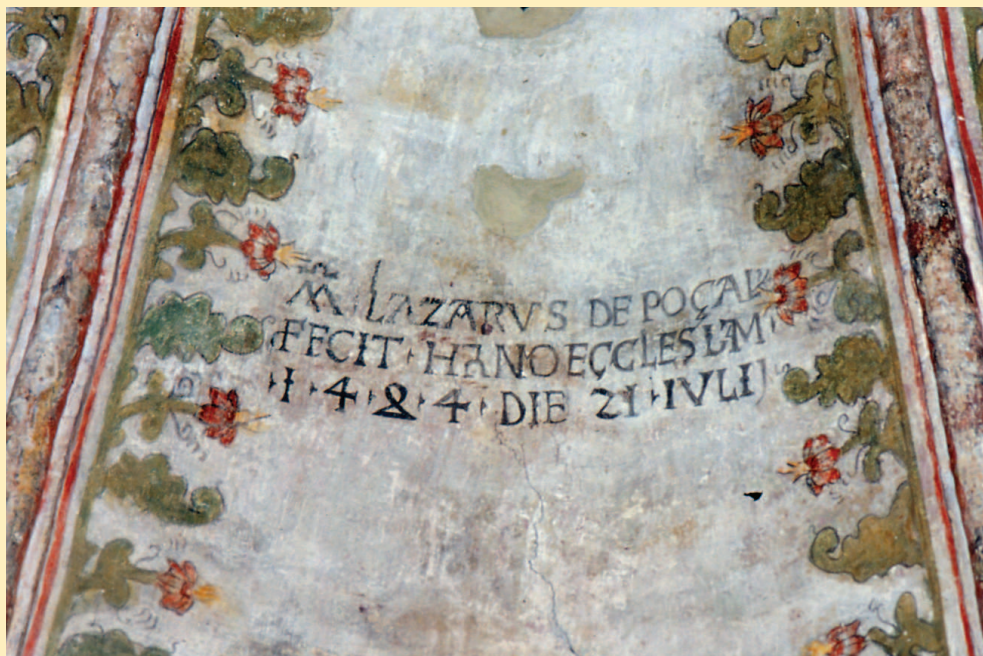 M LAZARVS DE POÇAL
FECIT · HANO ECÇLESIAM
· 1 · 4 · 8 · 4 · DIE 21 · IVLIJ